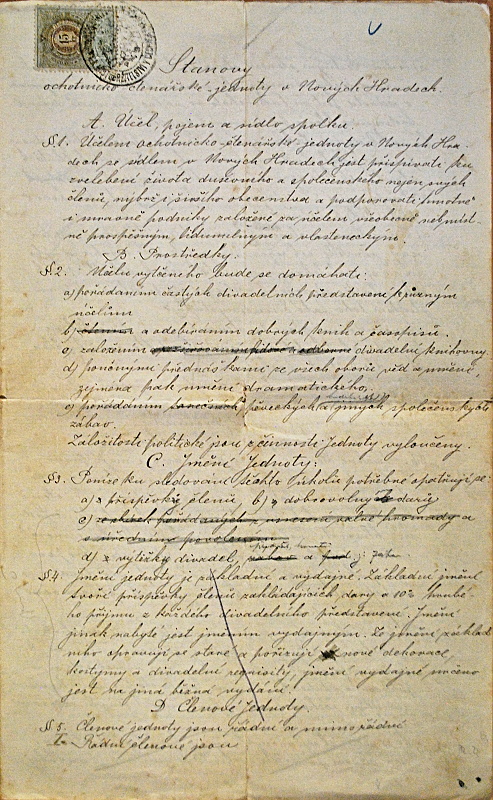 15
Stanovy
ochotnicko čtenářské jednoty v Nových Hradech.
A. Účel, pojem a sídlo spolku.
§ 1. Účelem ochotnicko čtenářské jednoty v Nových Hra-
dech se sídlem v Nových Hradech jest přispívati ku
zvelebení života duševního a společenského nejen svých
členů, nýbrž i širšího obecenstva a podporovati hmotně
i mravně podniky založené za účelem všeobecně
prospěšným, lidumilným a vlasteneckým.
B. Prostředky.
§ 2. Účelu vytčeného bude se domáhati:
a) pořádáním častých divadelních představení k různým
účelům
b) a odebíráním dobrých knih a časopisů.
c) založením divadelní knihovny.
d) poučnými přednáškami ze všech oborů věd a umění,
zejména pak umění dramatického.
e) pořádáním pěveckých a jiných společenských
zábav.
Záležitosti politické jsou z činnosti Jednoty vyloučeny.
C. Jmění Jednoty:
§ 3. Peníze ku sledování těchto úkolů potřebné opatřují se:
a) z příspěvků členů, b) z dobrovolných darů
c) ze sbírek pořádaných z usnesení valné hromady a
s úředním povolením
d) z výtěžku divadel, a
§ 4. Jmění jednoty je základní a výdajné. Základní jmění
tvoří příspěvky členů zakládajících dary a 10% hrubé-
ho příjmu z každého divadelního představení. Jmění
jinak nabyté jest jměním výdajným. Ze jmění základ-
ního opravují se staré a pořizují nové dekorace,
kostymy a divadelní requisity, jmění výdajné určeno
jest na jiná běžná vydání.
D. Členové Jednoty.
§ 5. Členové jednoty jsou řádní a mimořádní
I. Řádní členové jsou